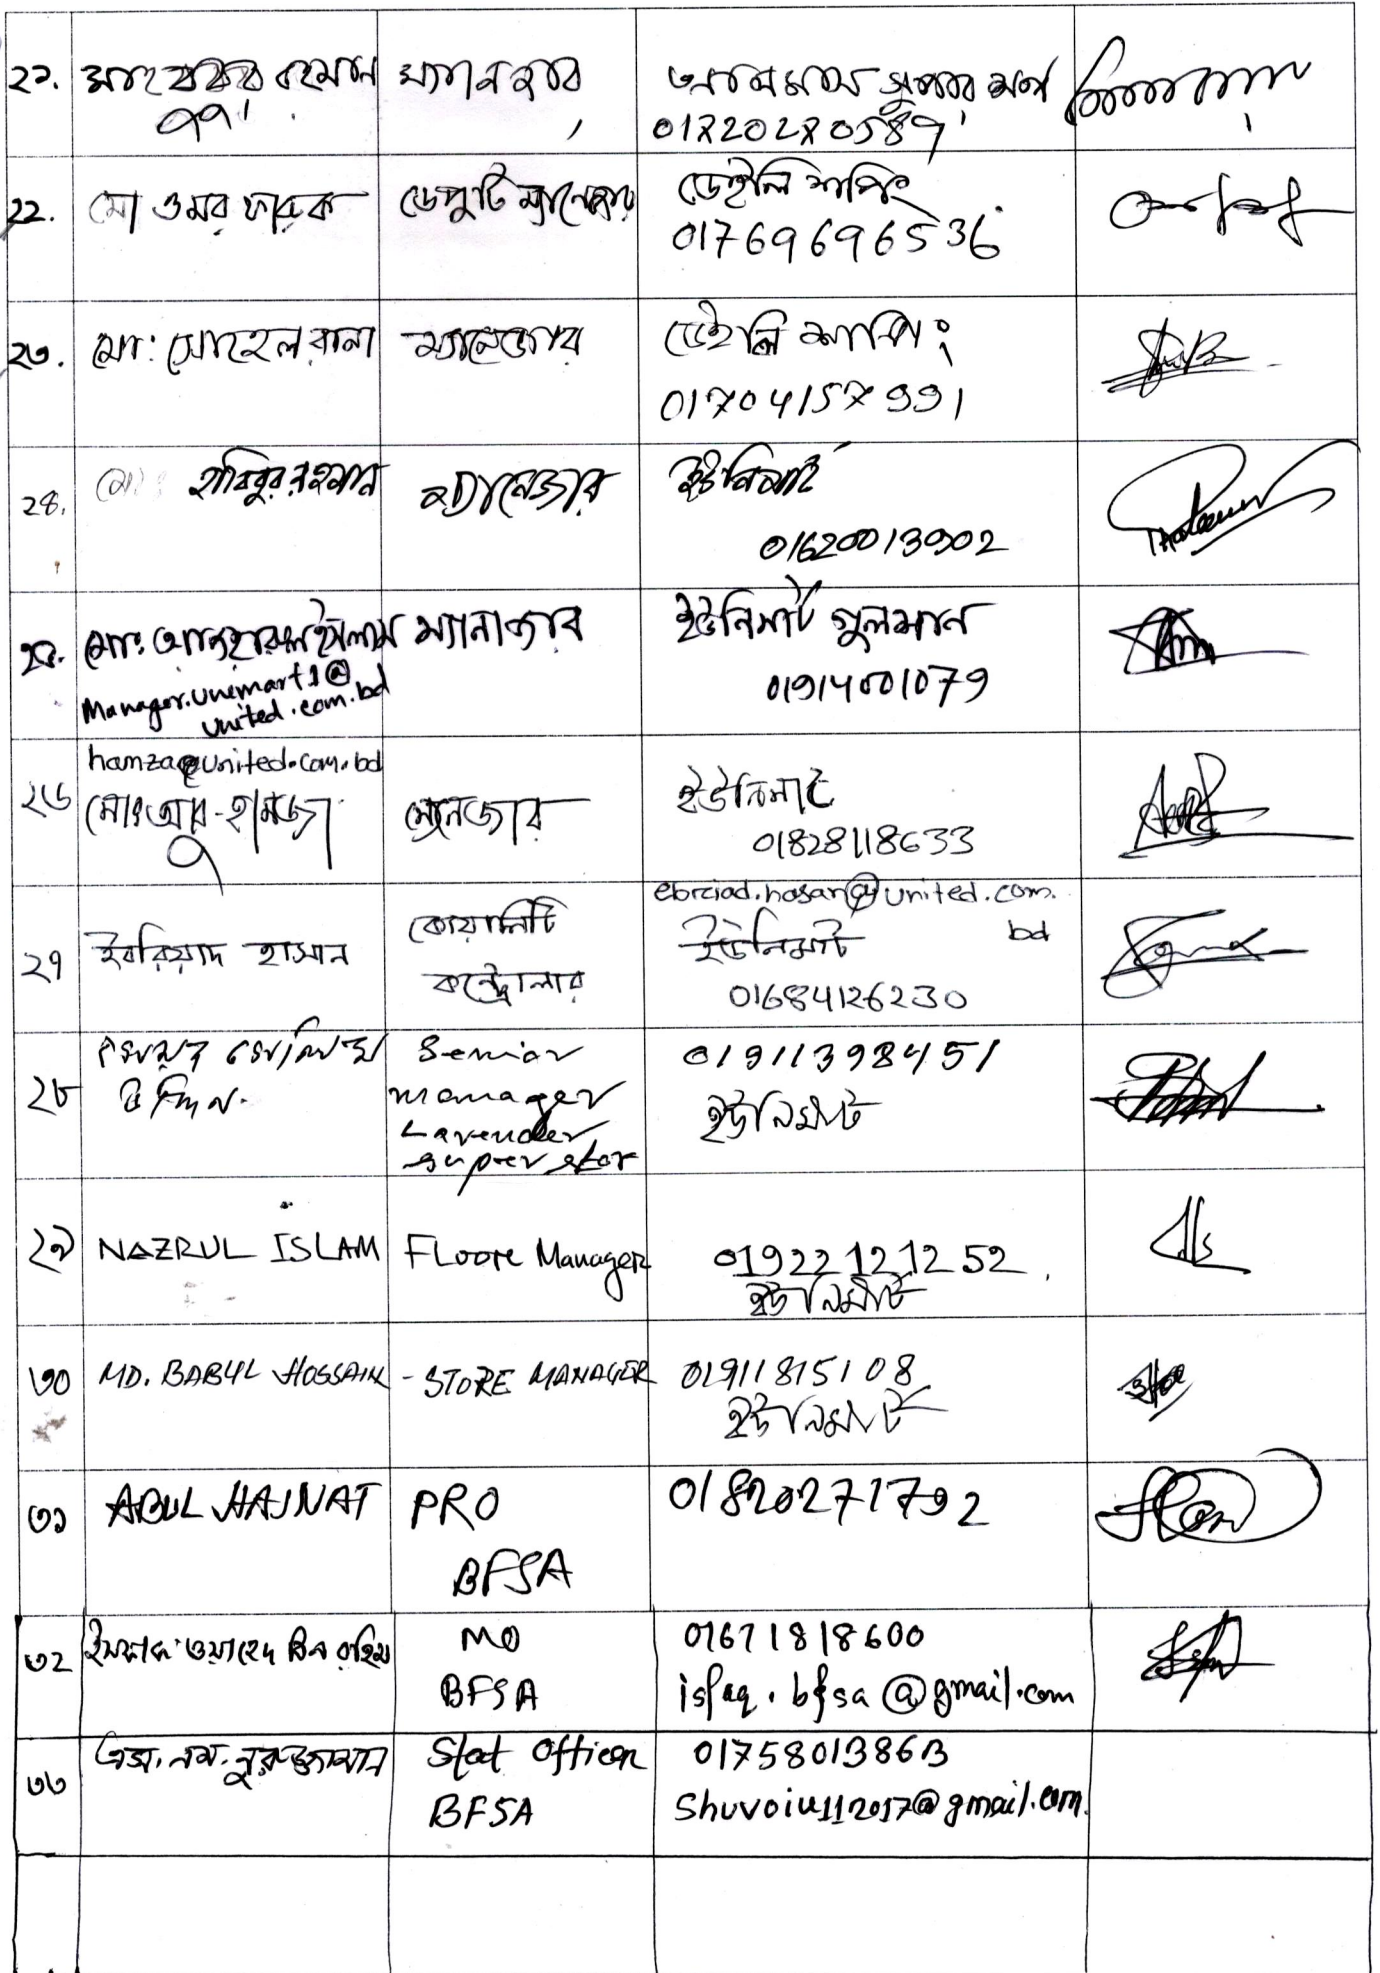 ২১. রহমান ম্যানেজার সুপার
২২. মো ওমর ফারুক ডেপুটি ম্যানেজার ডেইলি শপিং
01769696536
২৩. মো: সোহেল রানা ম্যানেজার ডেইলি শপিং
01704157991
২৪. মোঃ হাবিবুর রহমান ম্যানেজার ইউনিমার্ট
01620013902
২৫. মোঃ আজহারুল ইসলাম ম্যানাজার ইউনিমার্ট গুলশান
Manager.unimart1@
united.com.bd
01914001079
hamza@united.com.bd
২৬ মোঃ আবু-হামজা ম্যানেজার ইউনিমার্ট
01828118633
২৭ ইবরিয়াদ হাসান কোয়ালিটি
কন্ট্রোলার
ebrciad.hasan@united.com.
bd
ইউনিমার্ট
01684126230
২৮ Senior
manager
Lavender
super stor
01911398451
ইউনিমার্ট
২৯ NAZRUL ISLAM FLoore Manager 01922121252
ইউনিমার্ট
৩০ MD. BABUL HOSSAIN - STORE MANAGER 01911815108
ইউনিমার্ট
৩১ ABUL HASNAT PRO
BFSA
01820271792
৩২ ওয়াহেদ বিন রহিম MO
BFSA
01671818600
isfaq.bfsa@gmail.com
৩৩ এস.এম. নুরুজ্জামান Stat Officer
BFSA
01758013863
Shuvoiu112017@gmail.com